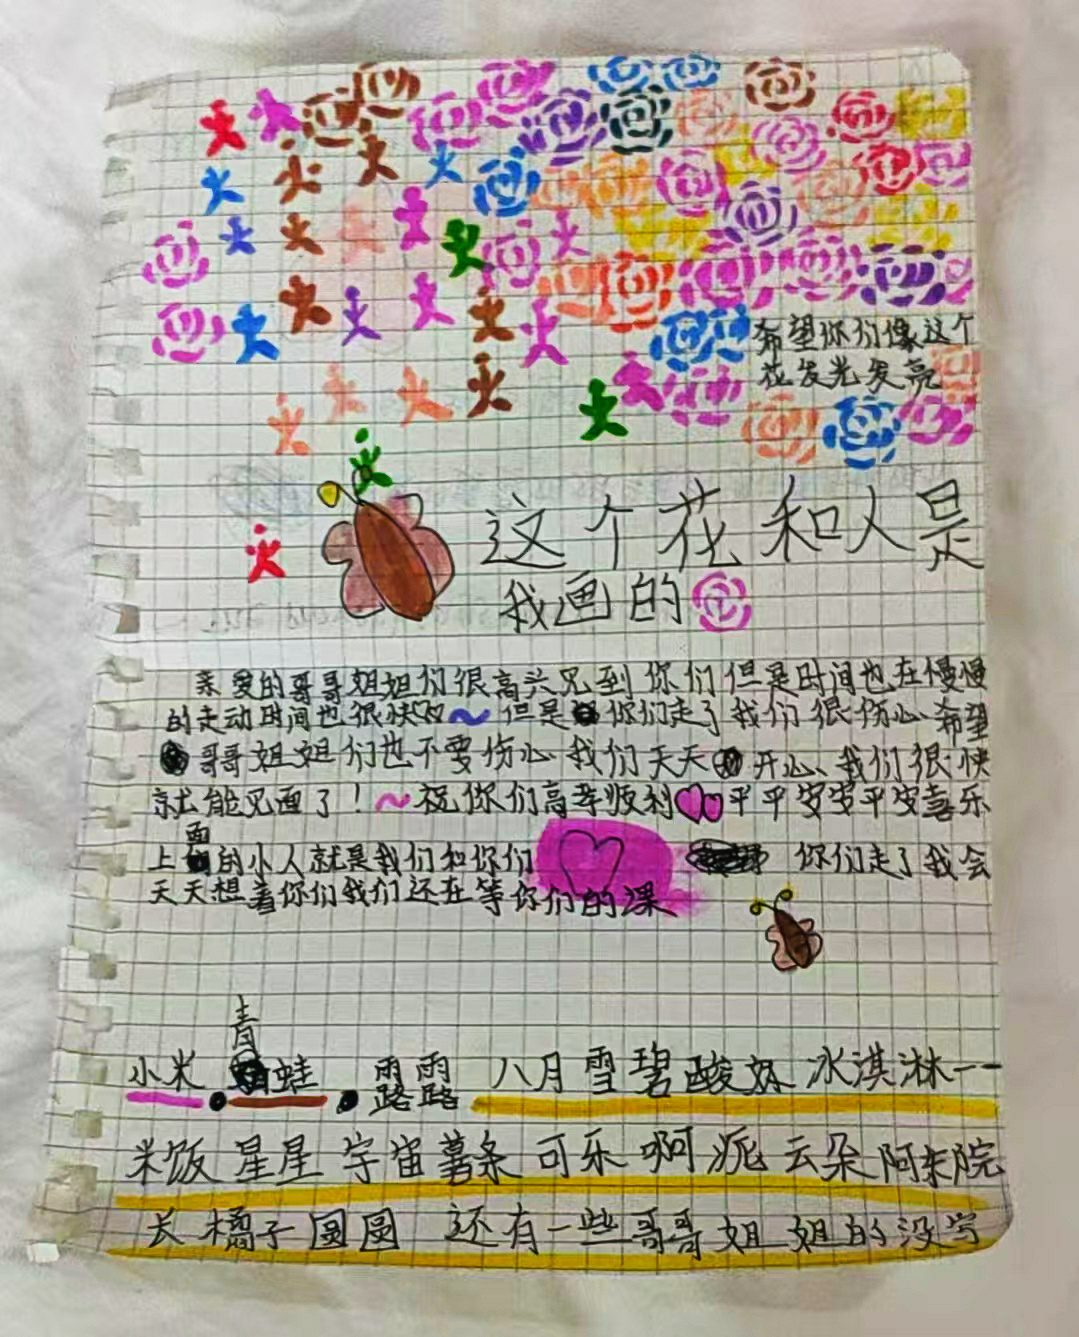 希望你们像这个
花发光发亮
这个花和人是
我画的
亲爱的哥哥姐姐们很高兴见到你们但是时间也在慢慢
的走动时间也很快的~但是你们走了我们很伤心希望
哥哥姐姐们也不要伤心、我们天天开心、我们很快
就能见面了!~祝你们高考顺利平平安安平安喜乐
上面的小人就是我们和你们 你们走了我会
天天想着你们我们还在等你们的课
小米.青蛙.露露 八月雪碧酸奶冰淇淋一一
米饭星星宇宙薯条可乐啊派云朵阿来院
长橘子圆圆 还有一些哥哥姐姐的没写